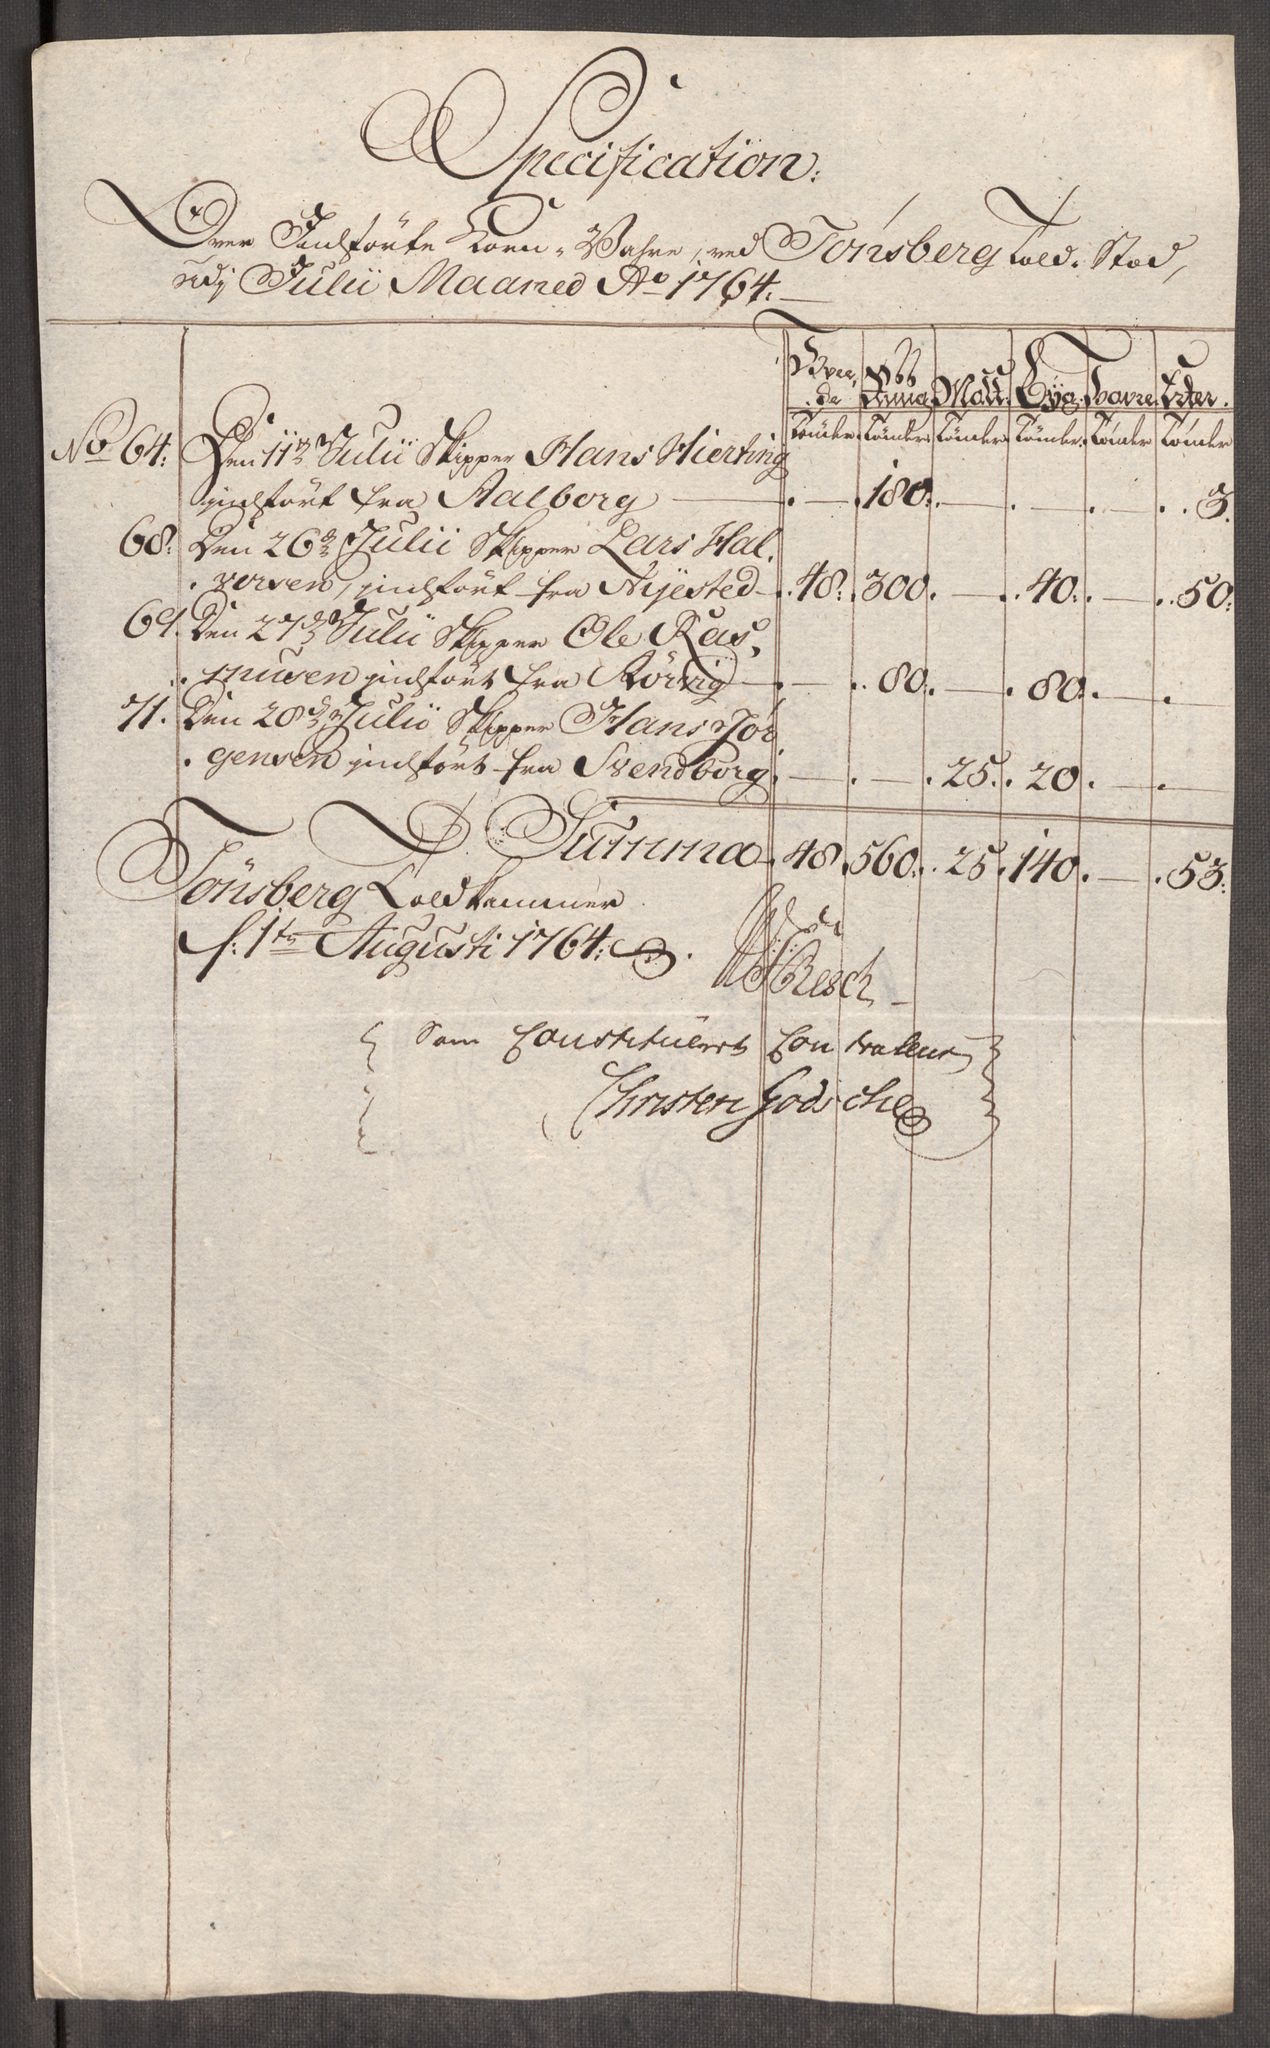 Specification.
Over Indførte Korn-Vahre, ved Tønsberg Told-Stod,
udj Julii Maaned Ao 1764.
Hvee- Malt. Byg. Havre. Erter.
de
Tønder. Tønder. Tønder. Tønder. Tønder. Tønder
No 64: Den 11te Julii Skipper Hans Hierting
indført fra Aalborg . — . 180. . — . — . — . . 3.
68. Den 26de Julii Skipper Lars Hal-
versen, indført fra Nyested . 48. . 300. . — . . 40. . — . . 50.
69. Den 27de Julii Skipper Ole Ras-
musen indført fra Rörvig . — . . 80. . — . 80. . — . —
71. Den 28de Julii Skipper Hans Jör-
gensen indført fra Svendborg . — . — . 25. . 20 . — . —
Summa . 48. 560. . 25. 140. . — . 53.
Tönsberg Toldkammer
d: 1te Augusti 1764.
Resch
Som Constitueret Controleur
Christen Godsche